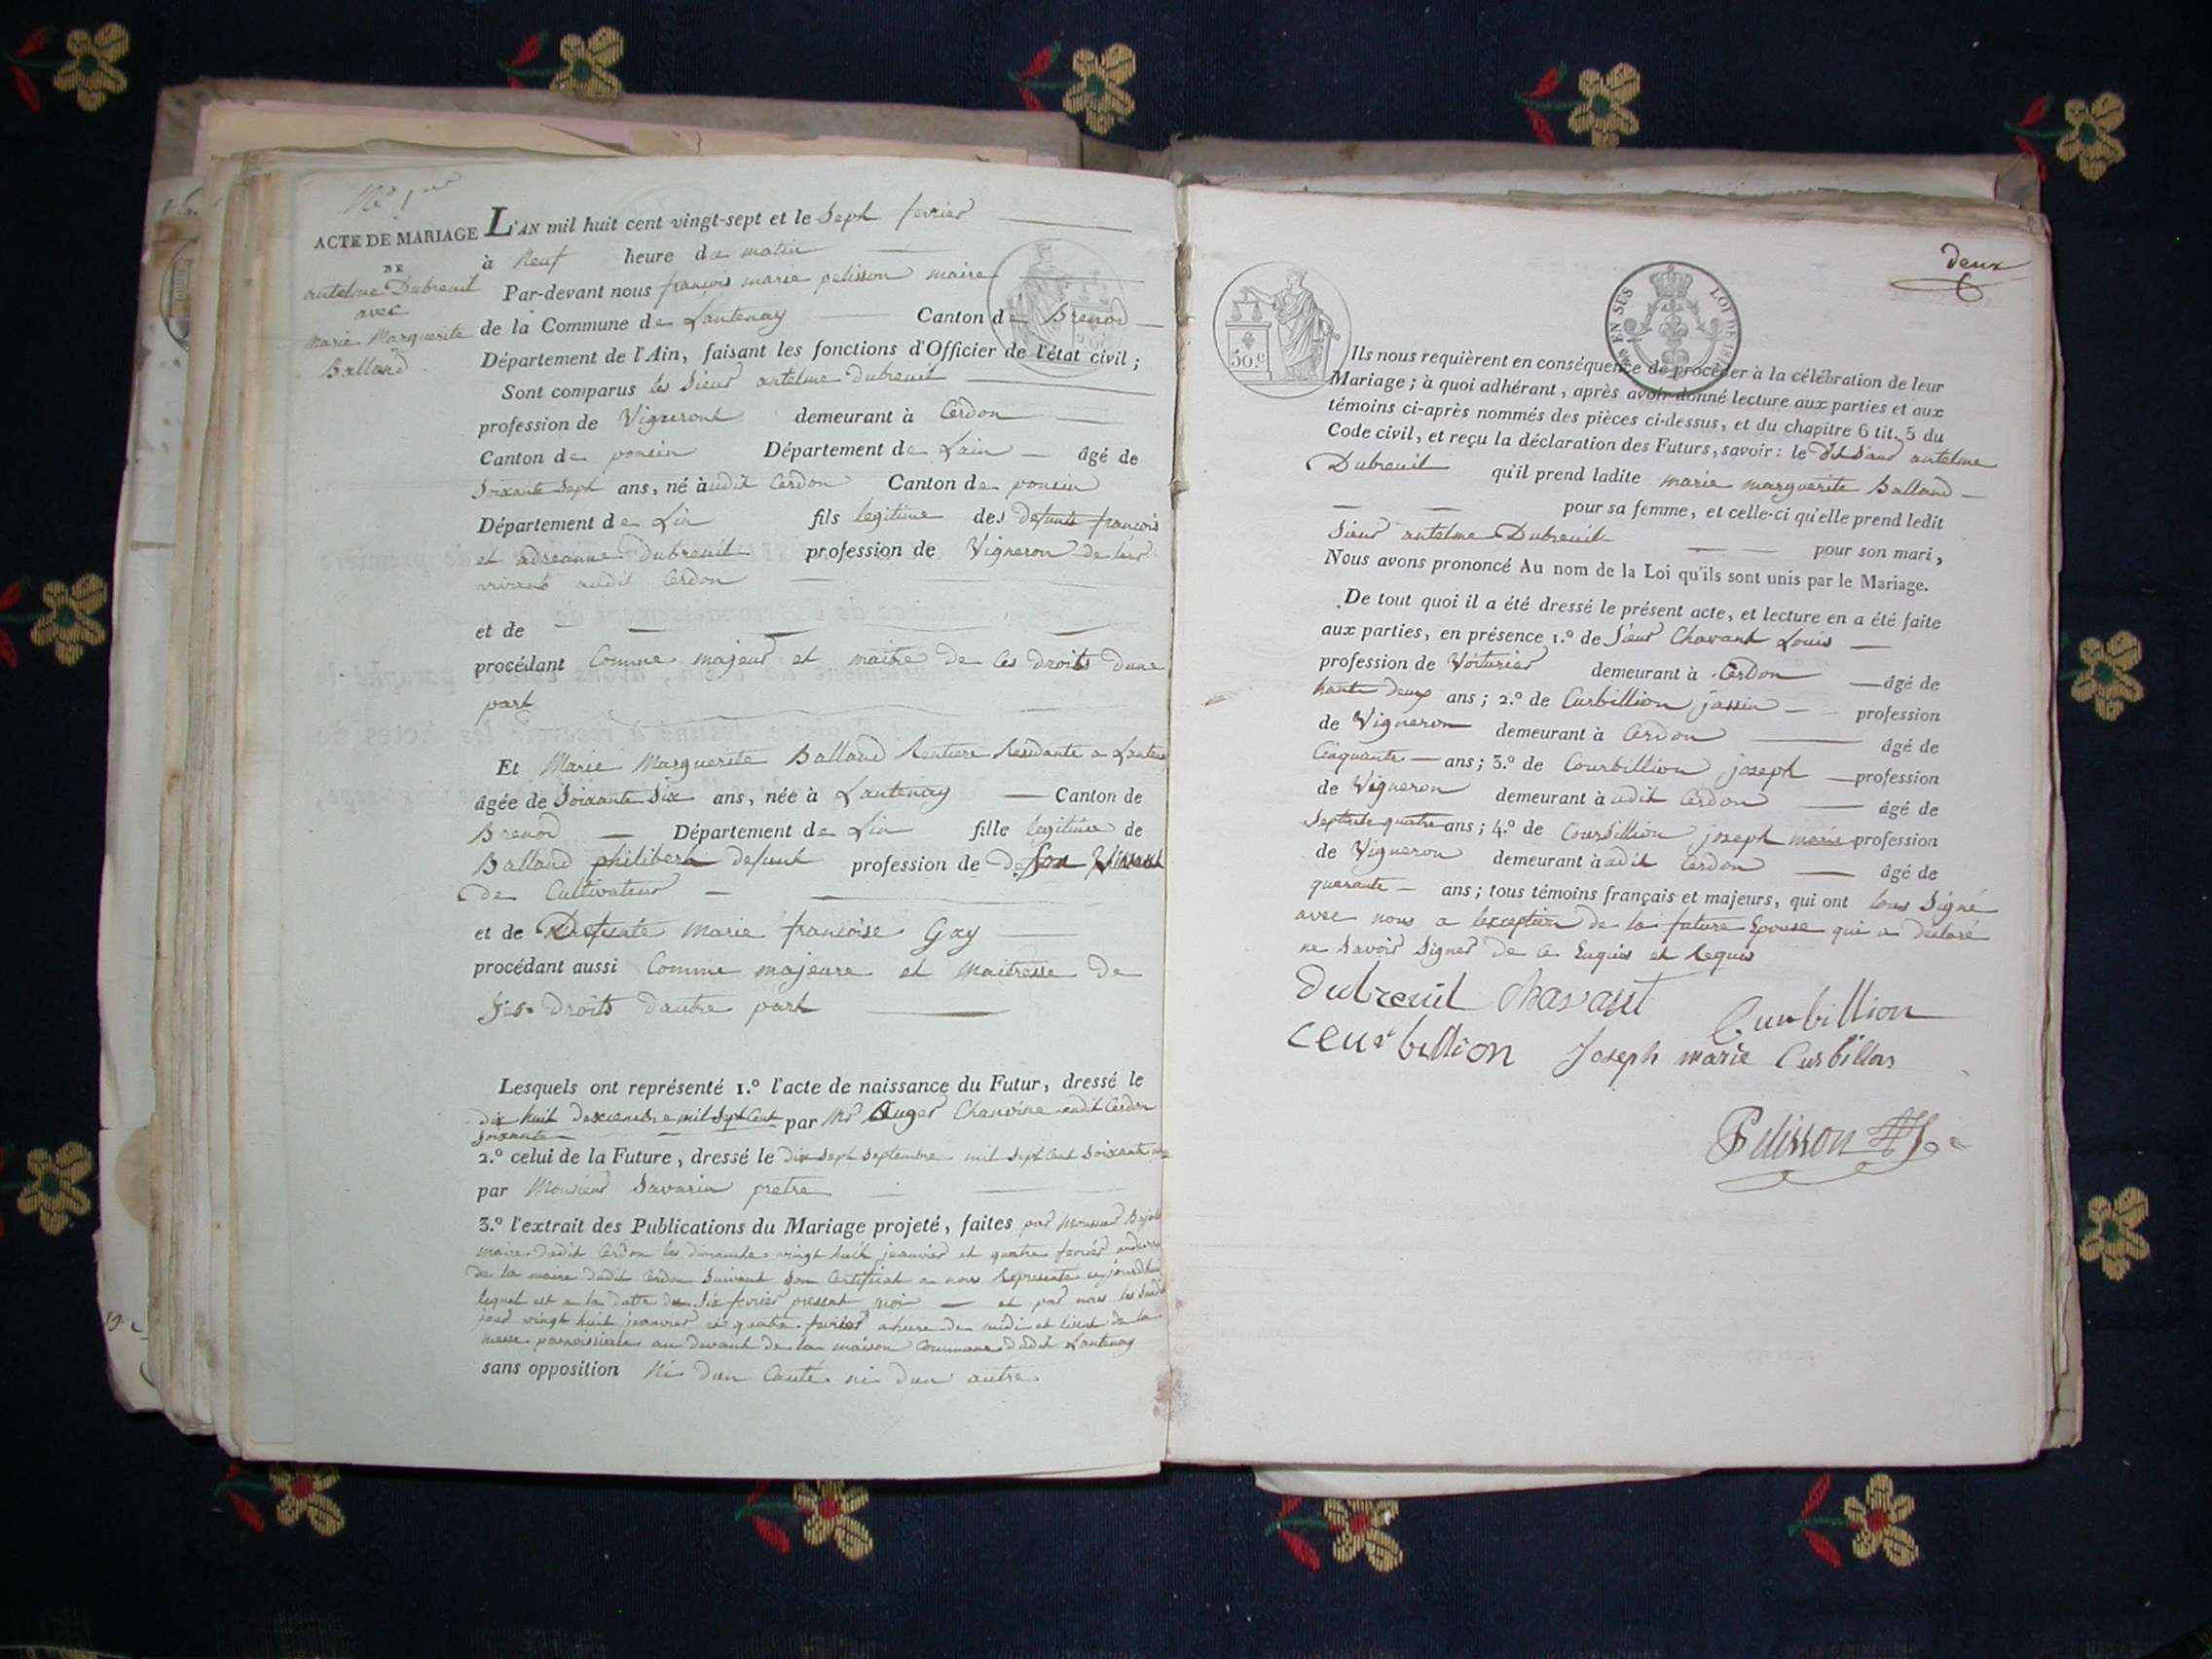 N° 1er
ACTE DE MARIAGE
DE
antelme Dubreuil
avec
marie Marguerite
Balland
L'AN mil huit cent vingt-sept et le Sept fevrier
à Neuf heure du matin
Par-devant nous françois marie pelisson maire
de la Commune de Lantenay Canton de Brenod
Département de l'Ain, faisant les fonctions d'Officier de l'état civil ;
Sont comparus les Sieur antelme dubreuil
profession de Vigneront demeurant à Cerdon
Canton de poncin Département de Lain âgé de
Soixante Sept ans, né àudit Cerdon Canton de poncin
Département de Lin fils legitime des defunts françois
et adreanne Dubreuil profession de Vigneron de leur
vivant audit Cerdon
et de
procédant Comme majeur et maitre de Ces droits dune
part
Et Marie Marguerite Balland Rentiere Residante a
âgée de Soixante Six ans, née à Lantenay Canton de
Brenod Département de Lin fille legitime de
Balland philibert defunt profession de de son Vivant
de Cultivateur
et de Defunte marie françoise Gay
procédant aussi Comme majeure et maitresse de
Ses Droits dautre part
Lesquels ont représenté 1.° l'acte de naissance du Futur, dressé le
dix huit dexcembre mil Sept Cent par Mr Auger Chanoine audit Cerdon
Soixante
2.° celui de la Future, dressé le dix Sept Septembre mil Sept Cent Soixante
par Monsieur Savarin pretre
3.° l'extrait des Publications du Mariage projeté, faites par Monsieur
maire dudit Cerdon les dimanche vingt huit jeanvier et quatre fevrier
de la maire dudit Cerdon Suivant Son Certificat a nous Representé
lequel est a la datte du Six fevrier present moi et par nous les
jour vingt huit jeanvier et quatre fevrier a heure de midi et de la
messe paroissiale au devant de la maison Commune dudit Lantenay
sans opposition Ni Dun Couté ni dun autre
deux
50 c.
EN SUS
LOI DE
Ils nous requièrent en conséquence de procéder à la célébration de leur
Mariage ; à quoi adhérant, après avoir donné lecture aux parties et aux
témoins ci-après nommés des pièces ci-dessus, et du chapitre 6 tit. 5 du
Code civil, et reçu la déclaration des Futurs, savoir : le dit Sieur antelme
Dubreuil qu'il prend ladite marie marguerite Balland
pour sa femme, et celle-ci qu'elle prend ledit
Sieur antelme Dubreuil pour son mari,
Nous avons prononcé Au nom de la Loi qu'ils sont unis par le Mariage.
De tout quoi il a été dressé le présent acte, et lecture en a été faite
aux parties, en présence 1.° de Sieur Chavant Louis
profession de Voiturier demeurant à Cerdon âgé de
trante deux ans ; 2.° de Curbillion jossin profession
de Vigneron demeurant à Cerdon âgé de
Cinquante ans ; 3.° de Courbillion joseph profession
de Vigneron demeurant à udit Cerdon âgé de
Septente quatre ans ; 4.° de Courbillion joseph marie profession
de Vigneron demeurant à udit Cerdon âgé de
quarante ans ; tous témoins français et majeurs, qui ont tous Signé
avec nous a lexception de la future Epouse qui a declaré
ne Savoir Signer de Ce Enquis et Requis
dubreuil Chavant
Curbillion
Ceurbillion Joseph marie Curbillon
Pelisson